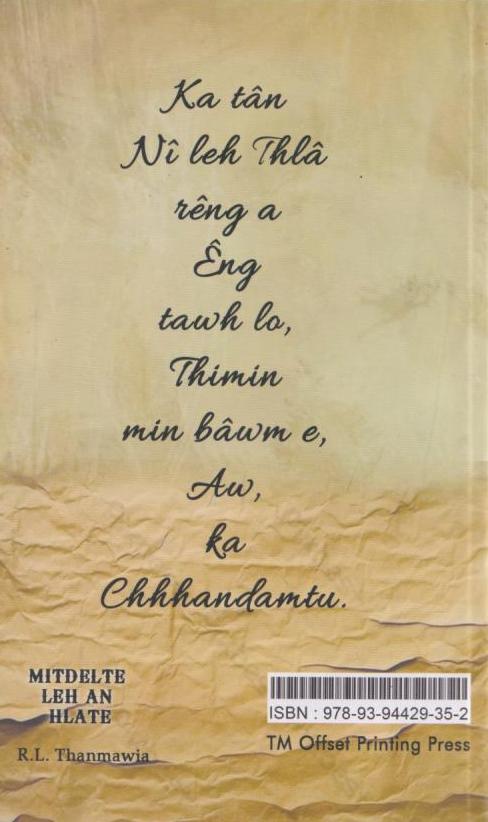 Ka tân
Nî leh Thlâ
rêng a
Êng
tawh lo,
Thimin
min bâwm e,
Aw,
ka
Chhhandamtu.
MITDELTE
LEH AN
HLATE
R.L. Thanmawia
ISBN : 978-93-94429-35-2
TM Offset Printing Press